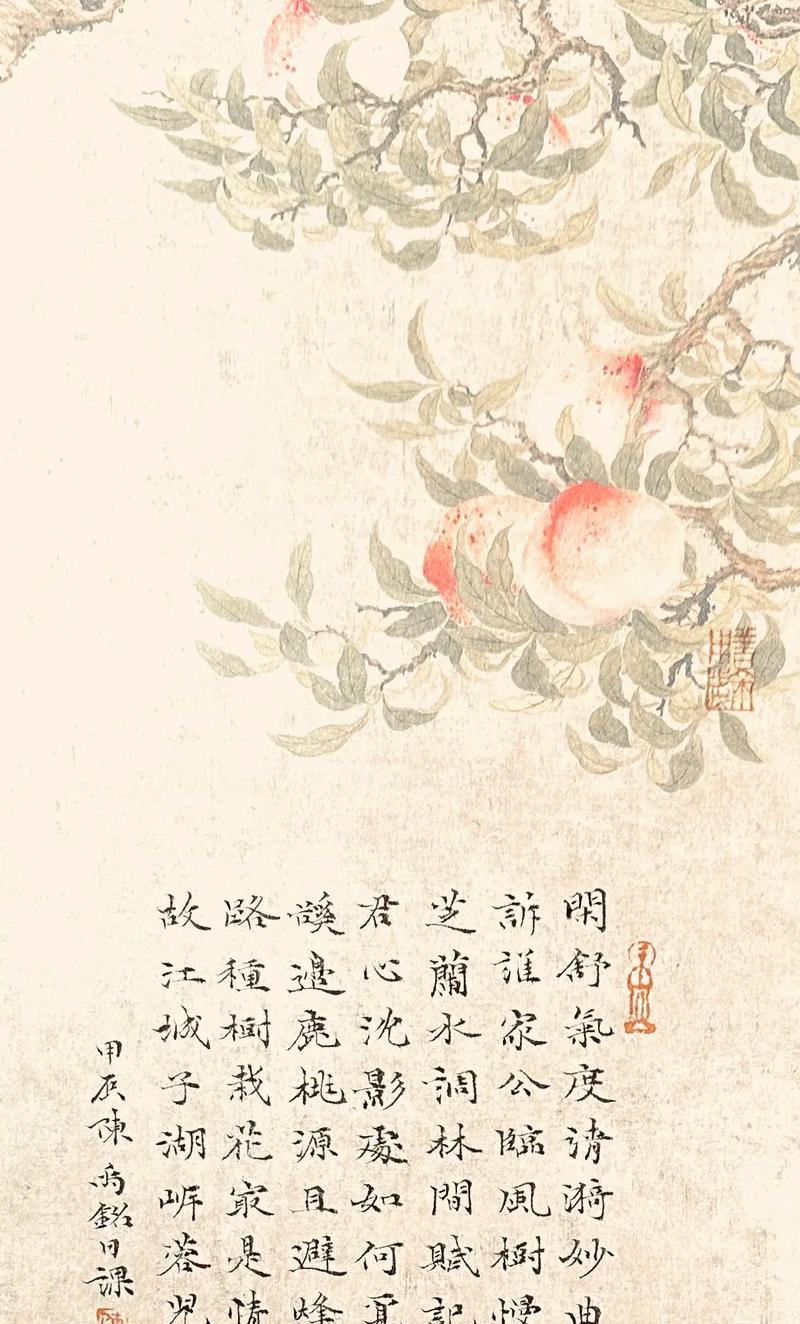 閑舒氣度清漪妙曲
訴誰家公臨風樹慢
芝蘭水調林間賦記
君心沈影處如何
谿邊鹿桃源且避烽
路種樹栽花最是情
故江城子湖畔蓉兒
甲辰陳禹銘日課